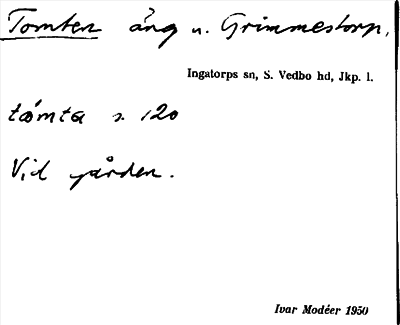 Tomten äng u. Grimmestorp,
Ingatorps sn, S. Vedbo hd, Jkp. l.
tómta s. 120
Vid gården.
Ivar Modéer 1950